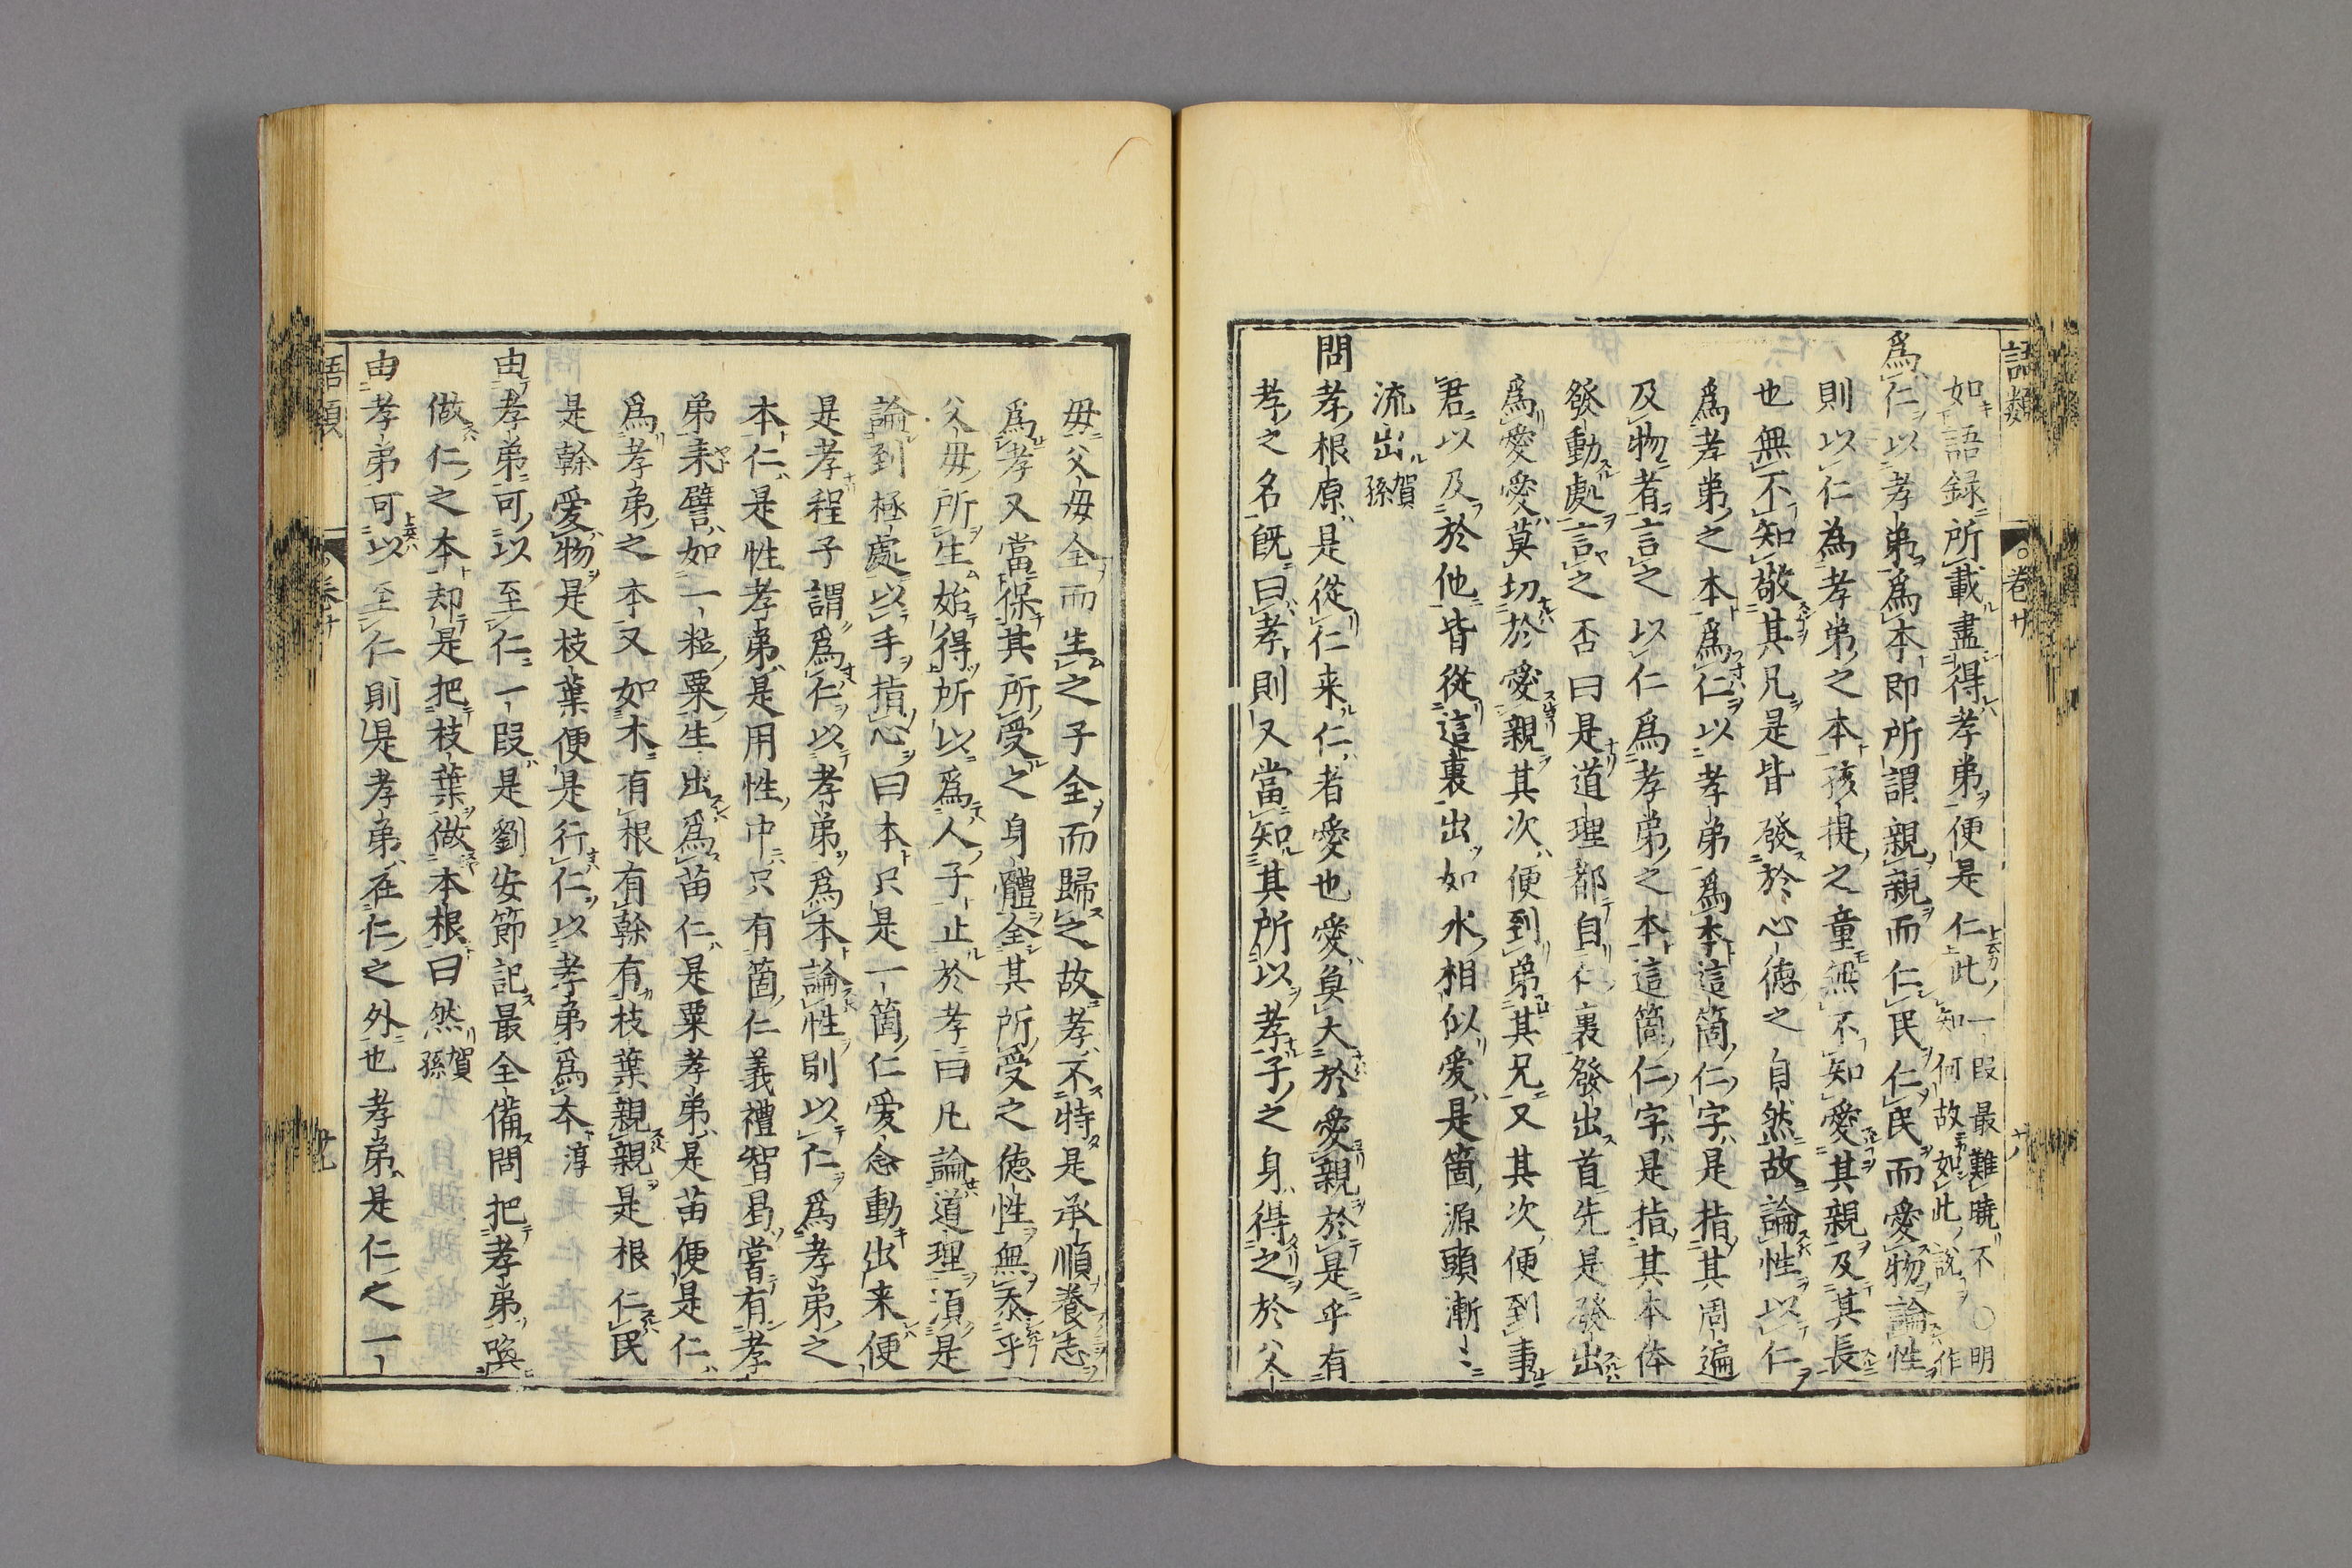 語類
卷廿
如語録所載盡得孝弟便是仁此一段最難曉不知何故如此說○明作
爲仁以孝弟爲本即所謂親親而仁民仁民而愛物論性
則以仁為孝弟之本孩提之童無不知愛其親及其長
也無不知敬其兄是皆發於心德之自然故論性以仁
爲孝弟之本爲仁以孝弟爲本這箇仁字是指其周遍
及物者言之以仁爲孝弟之本這箇仁字是指其本体
發動處言之否曰是道理都自仁裏發出首先是發出
爲愛愛莫切於愛親其次便到弟其兄又其次便到事
君以及於他皆從這裏出如水相似愛是箇源頭漸ミ
流出賀孫
問孝根原是從仁来仁者愛也愛莫大於愛親於是乎有
孝之名既曰孝則又當知其所以孝子之身得之於父
母父母全而生之子全而歸之故孝不特是承順養志
爲孝又當保其所受之身體全其所受之德性無忝乎
父母所生始得所以爲人子止於孝曰凡論道理須是
論到極處以手指心曰本只是一箇仁愛念動出来便
是孝程子謂爲仁以孝弟爲本論性則以仁爲孝弟之
本仁是性孝弟是用性中只有箇仁義禮智曷嘗有孝
弟来譬如一粒粟生出爲苗仁是粟孝弟是苗便是仁
爲孝弟之本又如木有根有幹有枝葉親親是根仁民
是幹愛物是枝葉便是行仁以孝弟爲本淳
由孝弟可以至仁一段是劉安節記最全備問把孝弟喚
做仁之本却是把枝葉做本根曰然賀孫
由孝弟可以至仁則是孝弟在仁之外也孝弟是仁之一
語類
卷廿